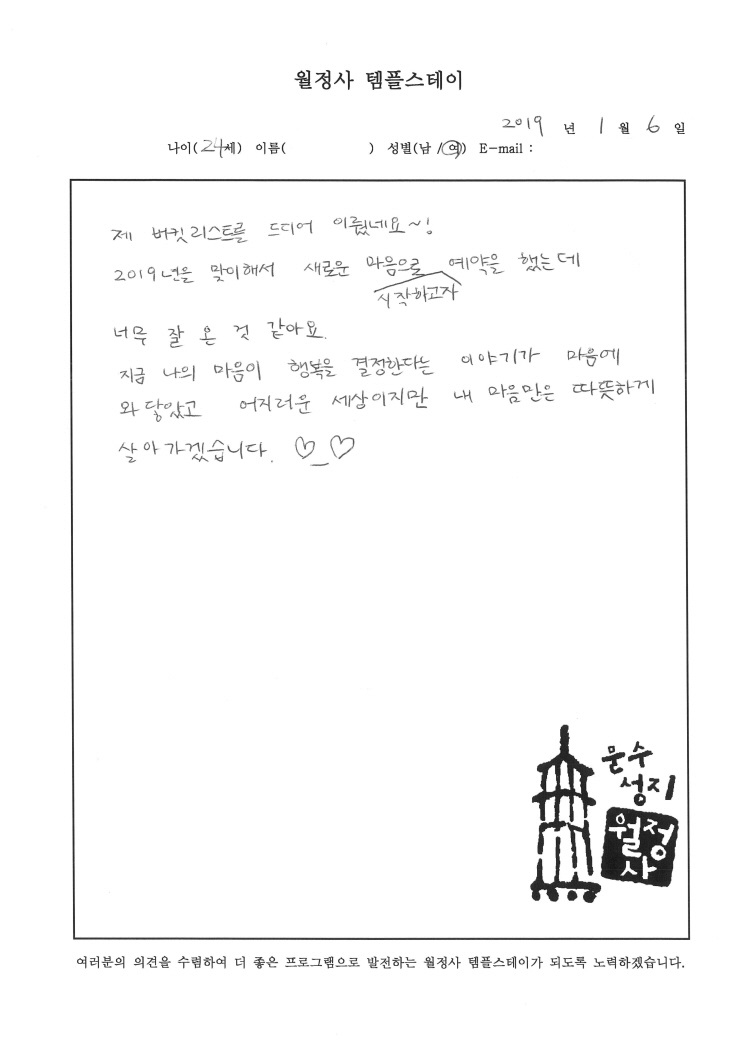 월정사 템플스테이
2019 년 1 월 6 일
나이(24세) 이름( ) 성별(남 /여) E-mail :
제 버킷리스트를 드디어 이뤘네요~!
2019년을 맞이해서 새로운 마음으로 예약을 했는데
시작하고자
너무 잘 온 것 같아요.
지금 나의 마음이 행복을 결정한다는 이야기가 마음에
와닿았고 어지러운 세상이지만 내 마음만은 따뜻하게
살아가겠습니다. ♡_♡
문수
성지
월정
사
여러분의 의견을 수렴하여 더 좋은 프로그램으로 발전하는 월정사 템플스테이가 되도록 노력하겠습니다.